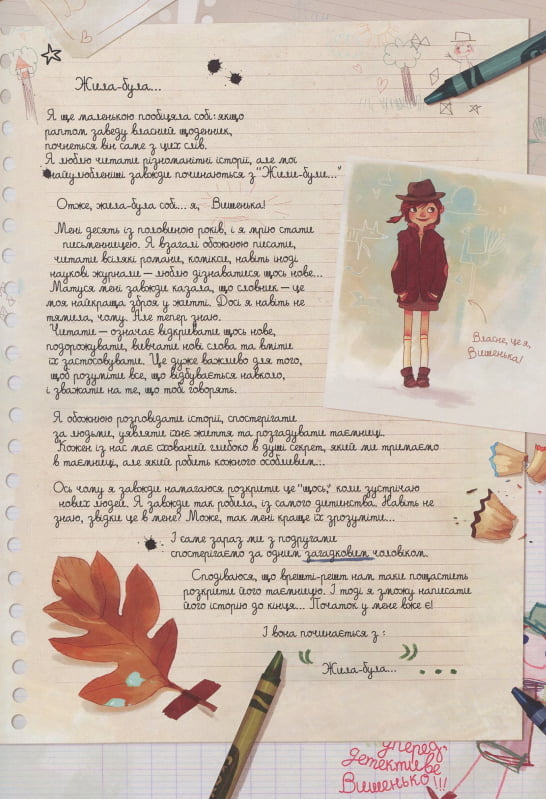 Жила-була...
Я ще маленькою пообіцяла собі: якщо
раптом заведу власний щоденник,
почнеться він саме з цих слів.
Я люблю читати різноманітні історії, але мої
найулюбленіші завжди починаються з "Жили-були..."
Отже, жила-була собі... я, Вишенька!
Мені десять із половиною років, і я мрію стати
письменницею. Я взагалі обожнюю писати,
читати всілякі романи, комікси, навіть іноді
наукові журнали — люблю дізнаватися щось нове...
Матуся мені завжди казала, що словник — це
моя найкраща зброя у житті. Досі я навіть не
тямила, чому. Але тепер знаю.
Читати — означає відкривати щось нове,
подорожувати, вивчати нові слова та вміти
їх застосовувати. Це дуже важливо для того,
щоб розуміти все, що відбувається навколо,
і зважати на те, що тобі говорять.
Власне, це я,
Вишенька!
Я обожнюю розповідати історії, спостерігати
за людьми, уявляти їхнє життя та розгадувати таємниці.
Кожен із нас має схований глибоко в душі секрет, який ми тримаємо
в таємниці, але який робить кожного особливим...
Ось чому я завжди намагаюся розкрити це "щось," коли зустрічаю
нових людей. Я завжди так робила, із самого дитинства. Навіть не
знаю, звідки це в мене? Може, так мені краще їх зрозуміти...
І саме зараз ми з подругами
спостерігаємо за одним загадковим чоловіком.
Сподіваюся, що врешті-решт нам таки пощастить
розкрити його таємницю. І тоді я зможу написати
його історію до кінця... Початок у мене вже є!
І вона починається з :
“ Жила-була... ” ...
Уперед,
детективе
Вишенько!!!